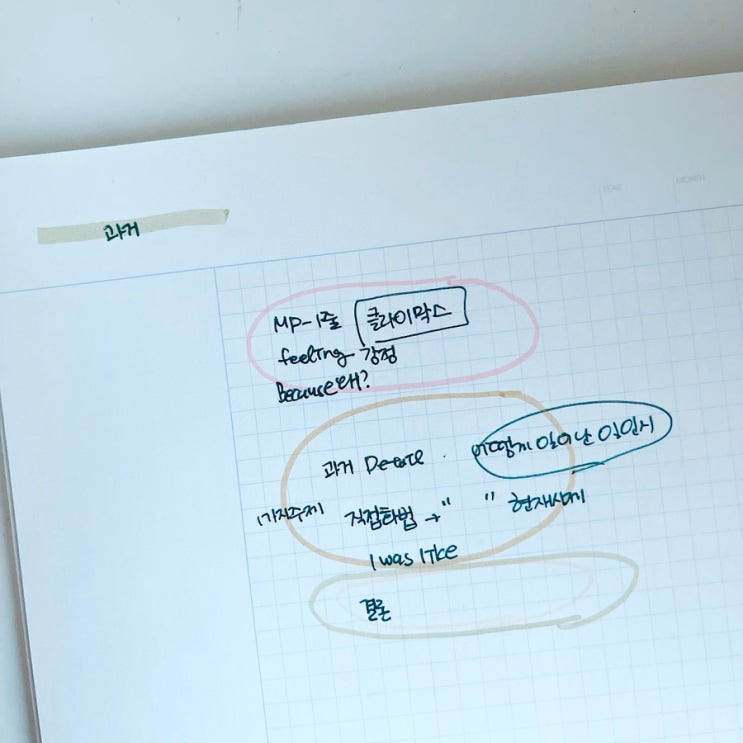 YEAR MONTH
과거
MP-1줄 클라이막스
feeling 감정
Because 왜?
과거 Detail 어떻게 일어난 일인지
1가지주제 직접화법 → " " 현재시제
I was like
결론